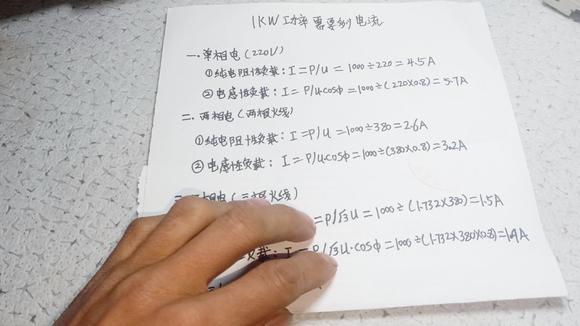 1KW功率需要的电流
一.单相电(220V)
①纯电阻性负载:I=P/U=1000÷220=4.5A
②电感性负载:I=P/Ucosφ=1000÷(220X0.8)=5.7A
二.两相电(两根火线)
①纯电阻性负载:I=P/U=1000÷380=2.6A
②电感性负载:I=P/Ucosφ=1000÷(380X0.8)=3.2A
相电(三根火线)
=P/√3U=1000÷(1.732X380)=1.5A
载:I=P/√3U·cosφ=1000÷(1.732X380X0.8)=1.9A